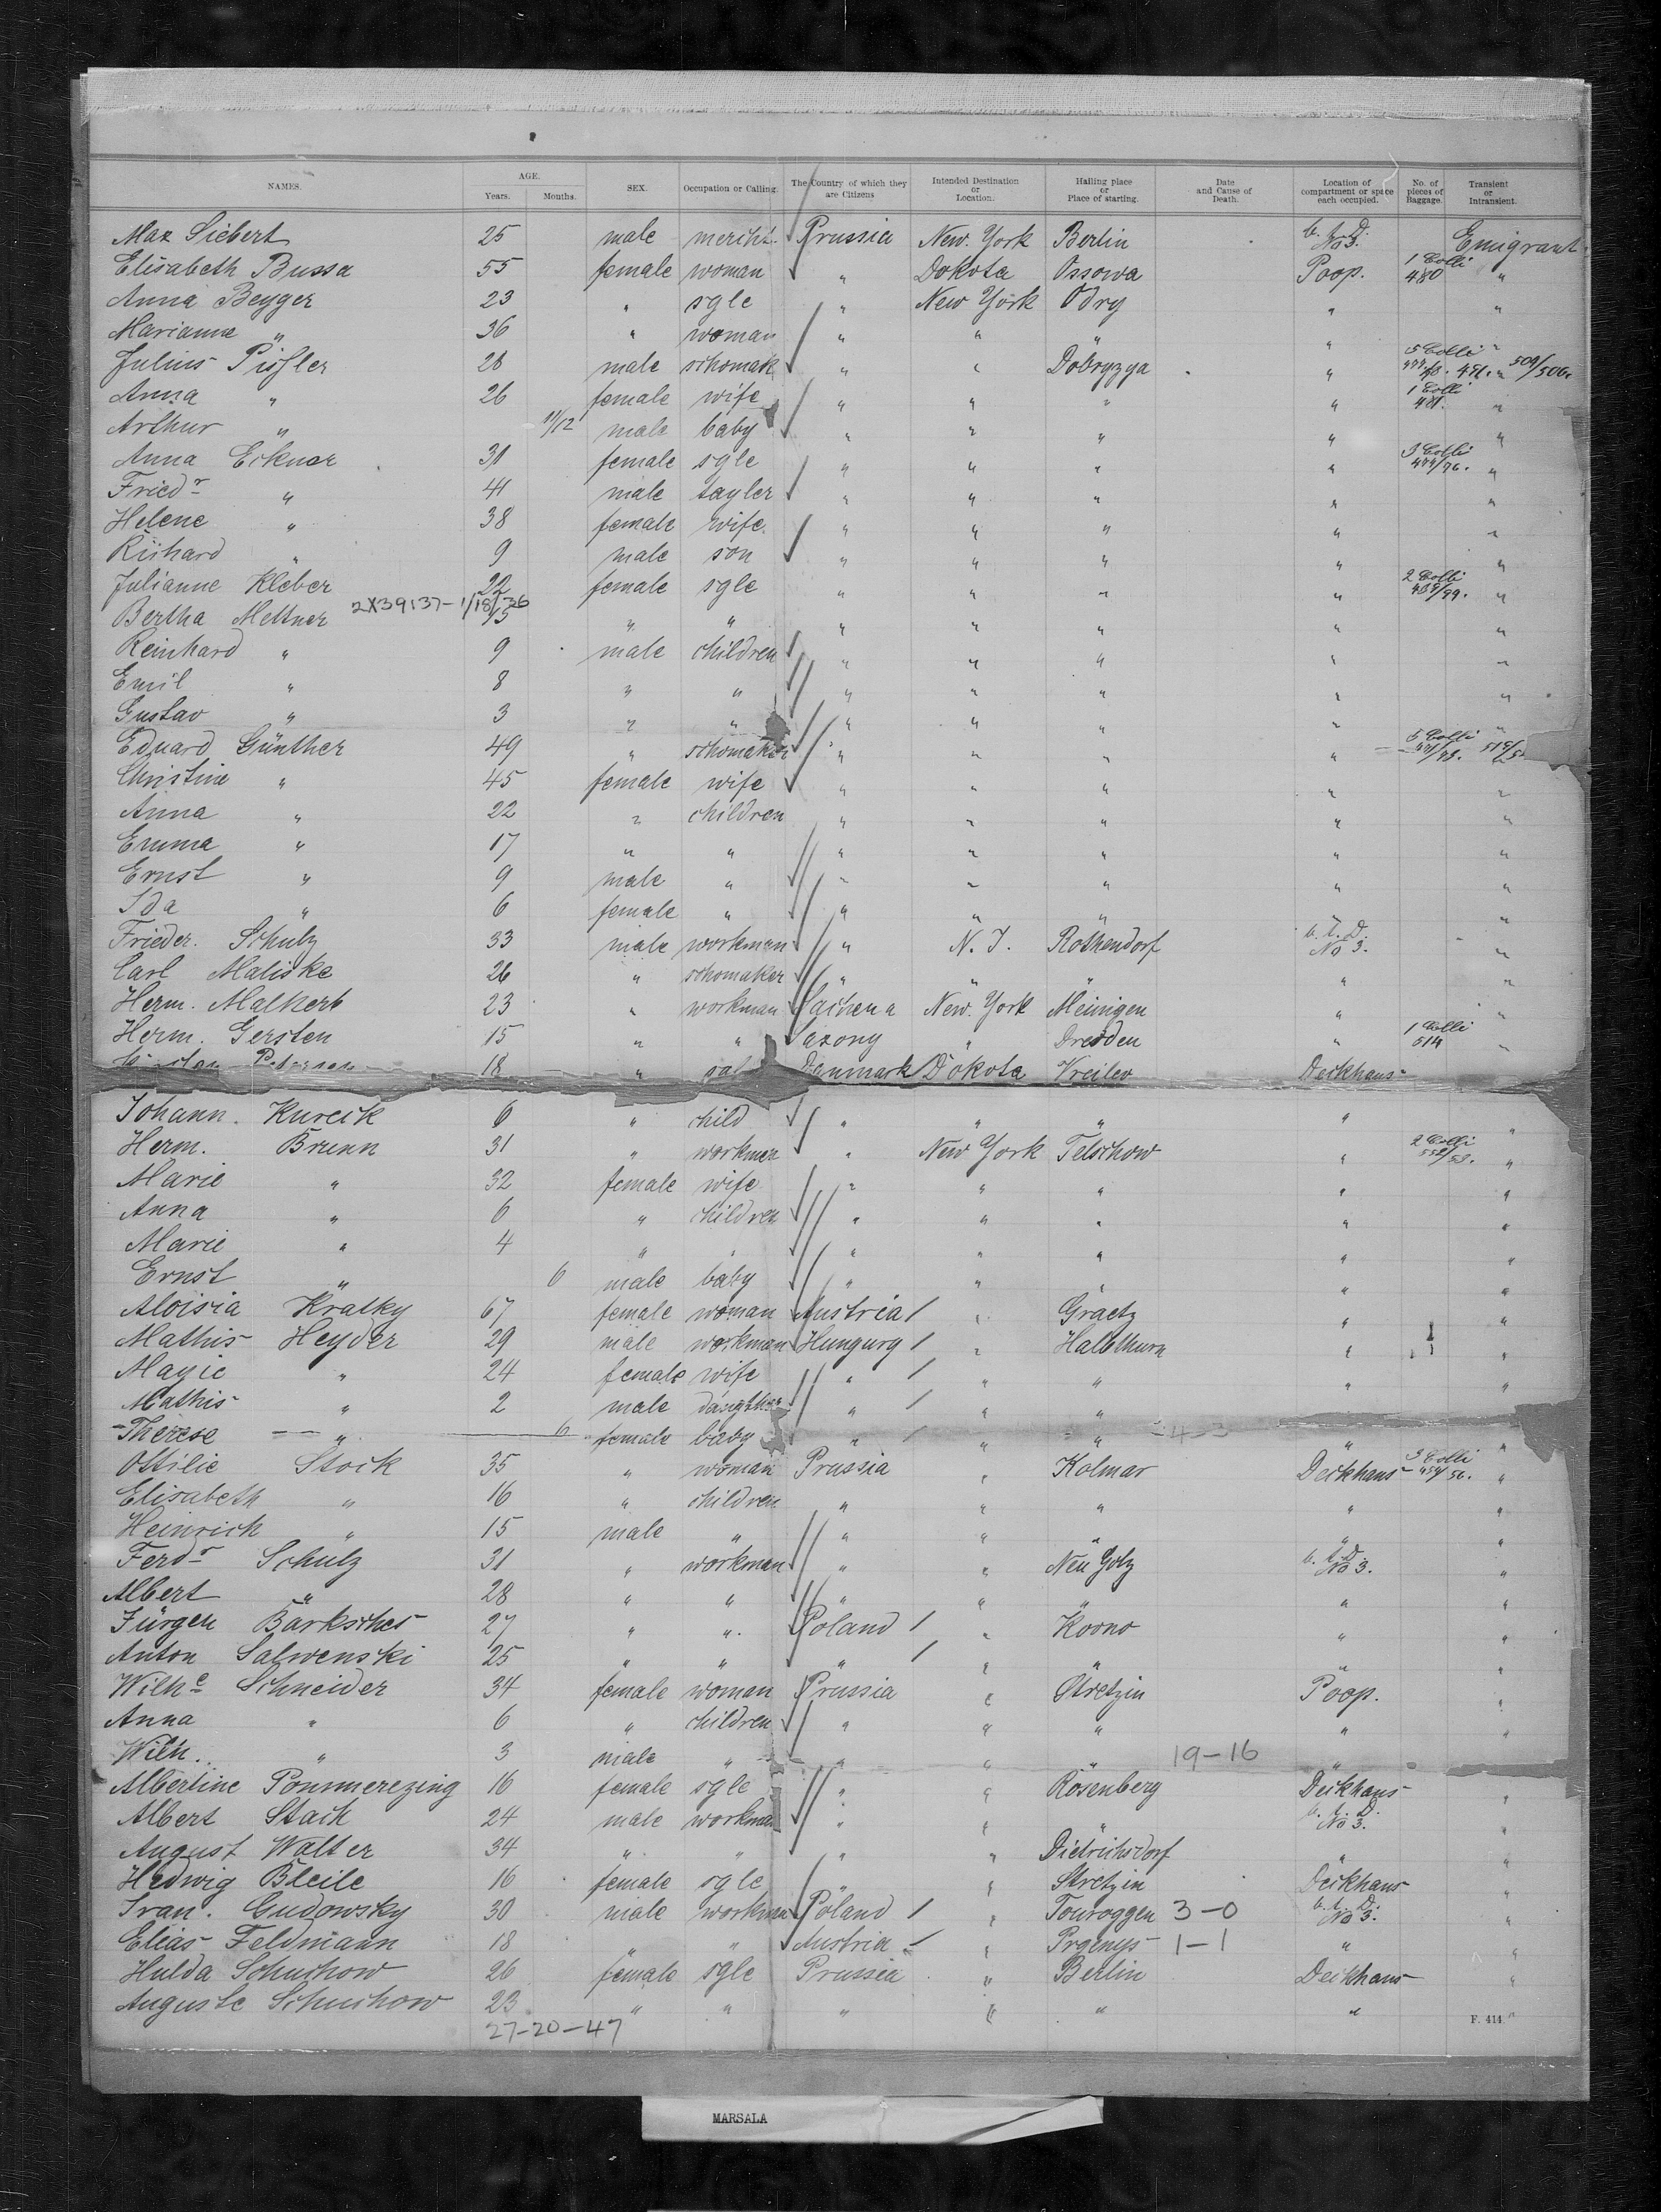 NAMES. AGE. Years. Months. SEX. Occupation or Calling. The Country of which they are Citizens Intended Destination or Location. Hailing place or Place of starting. Date and Cause of Death. Location of compartment or space each occupied. No. of pieces of Baggage. Transient or Intransient.
Max Siebert 25 male merch't. Prussia New. York Berlin No 3. Emigrant
Elisabeth Bussa 55 female woman " Dokota Ossowa Poop. 1 Colli 480 "
Anna Beyger 23 " sgle " New York Odry " "
Marianne " 36 " woman " " " " "
Julius 28 male schomak " " Dobryzya " 5 Colli 491. " 509/506.
Anna " 26 female wife " " " " 1 Colli 481. "
Arthur " 11/12 male baby " " " " "
Anna Eckner 31 female sgle " " " " 3 Colli "
Friedr " 41 male tayler " " " " "
Helene " 38 female wife. " " " " "
Richard " 9 male son " " " " "
Julianne Kleber 22 female sgle " " " " 2 Colli "
Bertha Mettner 2X39137-1/18/36 15 " " " " " " "
Reinhard " 9 male children " " " " "
Emil " 8 " " " " " " "
Gustav " 3 " " " " " " "
Eduard Günther 49 " schomaker " " " " 5 Colli
Christine " 45 female wife " " " " "
Anna " 22 " children " " " " "
Emma " 17 " " " " " " "
Ernst " 9 male " " " " " "
Ida " 6 female " " " " "
Frieder. Schulz 33 male workman " N. J. Rothendorf No 3. "
Carl Maliske 26 " schomaker " " " " "
Herm. Malherb 23 " workman New. York Meinigen " "
Herm. Gersten 15 " " Saxony " Dresden " 1 Colli 514 "
Petersen 18 " Danmark Dokota Vreilev Deckhaus
Johann. Kurcik 6 " child " " " " "
Herm. Brunn 31 " workmen " New York Telschow " 2 Colli 552/53. "
Marie " 32 female wife " " " " "
Anna " 6 " children " " " " "
Marie " 4 " " " " " " "
Ernst " 6 male baby " " " " "
Aloisia Kratky 67 female woman Austria / " Graetz " "
Mathis Heyder 29 male workman Hungurg / " Halbthurn " "
Magie " 24 female wife " / " " " "
Mathis " 2 male daughter " / " " "
Therese " 6 female baby " / " " 4-3 " "
Ottilie Stock 35 " woman Prussia " Kolmar Deckhaus 3 Colli 454/56. "
Elisabeth " 16 " children " " " " "
Heinrich " 15 male " " " " " "
Ferdr Schulz 31 " workman " " Neu Golz No 3. "
Albert " 28 " " " " " " "
Jürgen Barksches 27 " " Poland / " Kovno " "
Anton Salwenski 25 " " " / " " " "
Wilhe Schneider 34 female woman Prussia " Stretzin Poop. "
Anna " 6 " children " " " " "
Wilh. " 3 male " " " " 19-16 " "
Albertine Pommerezing 16 female sgle " " Rosenberg Deckhaus "
Albert Stack 24 male workman " " " No 3. "
August Walter 34 " " " " Dietrichsdorf " "
Hedwig Bleile 16 female sgle " " Stretzin Deckhaus "
Ivan. Gudowsky 30 male workman Poland / " Touroggen 3-0 No 3. "
Elias Feldmann 18 " " Austria / " Prgemys 1-1 " "
Hulda Schuchow 26 female sgle Prussia " Berlin Deckhaus "
Auguste Schuchow 23 " " " " " " "
27-20-47
F. 414
MARSALA